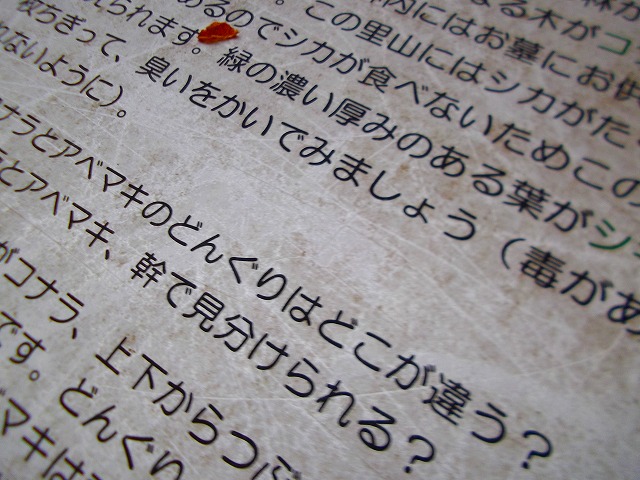 なる木がコ
内にはお墓にお供
られます。この里山にはシカがた
あるのでシカが食べないためこの
枚ちぎって、緑の濃い厚みのある葉がシ
ないように)。臭いをかいでみましょう(毒があ
ナラとアベマキのどんぐりはどこが違う?
とアベマキ、幹で見分けられる?
がコナラ、上下からつぶ
です。どんぐり
マキは